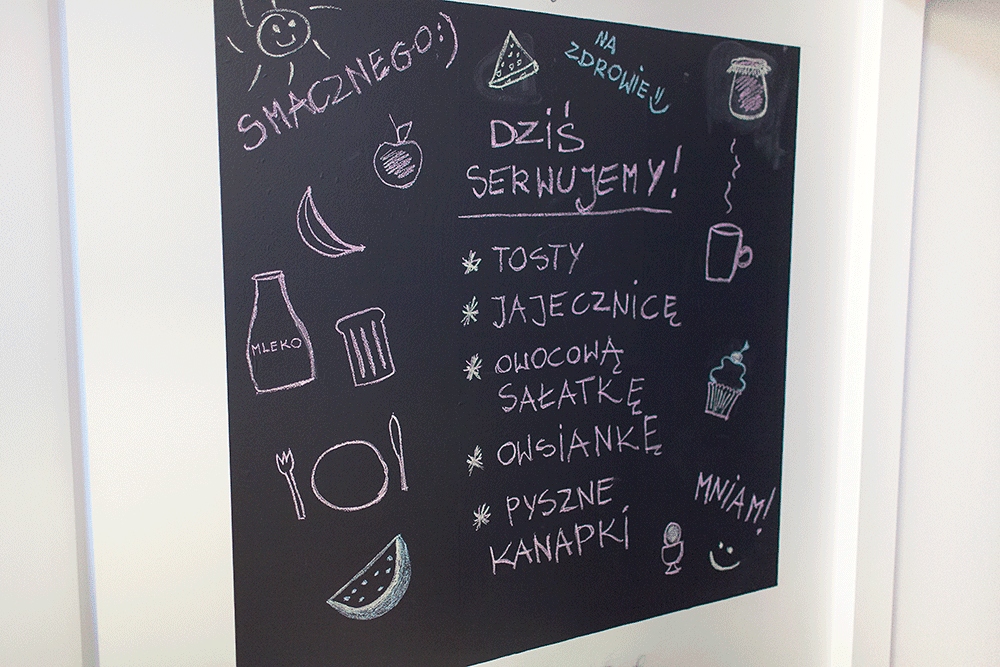 SMACZNEGO:)
NA
ZDROWIE!!
DZIŚ
SERWUJEMY!
* TOSTY
* JAJECZNICĘ
* OWOCOWĄ
SAŁATKĘ
* OWSIANKĘ
* PYSZNE
KANAPKI
MLEKO
MNIAM!